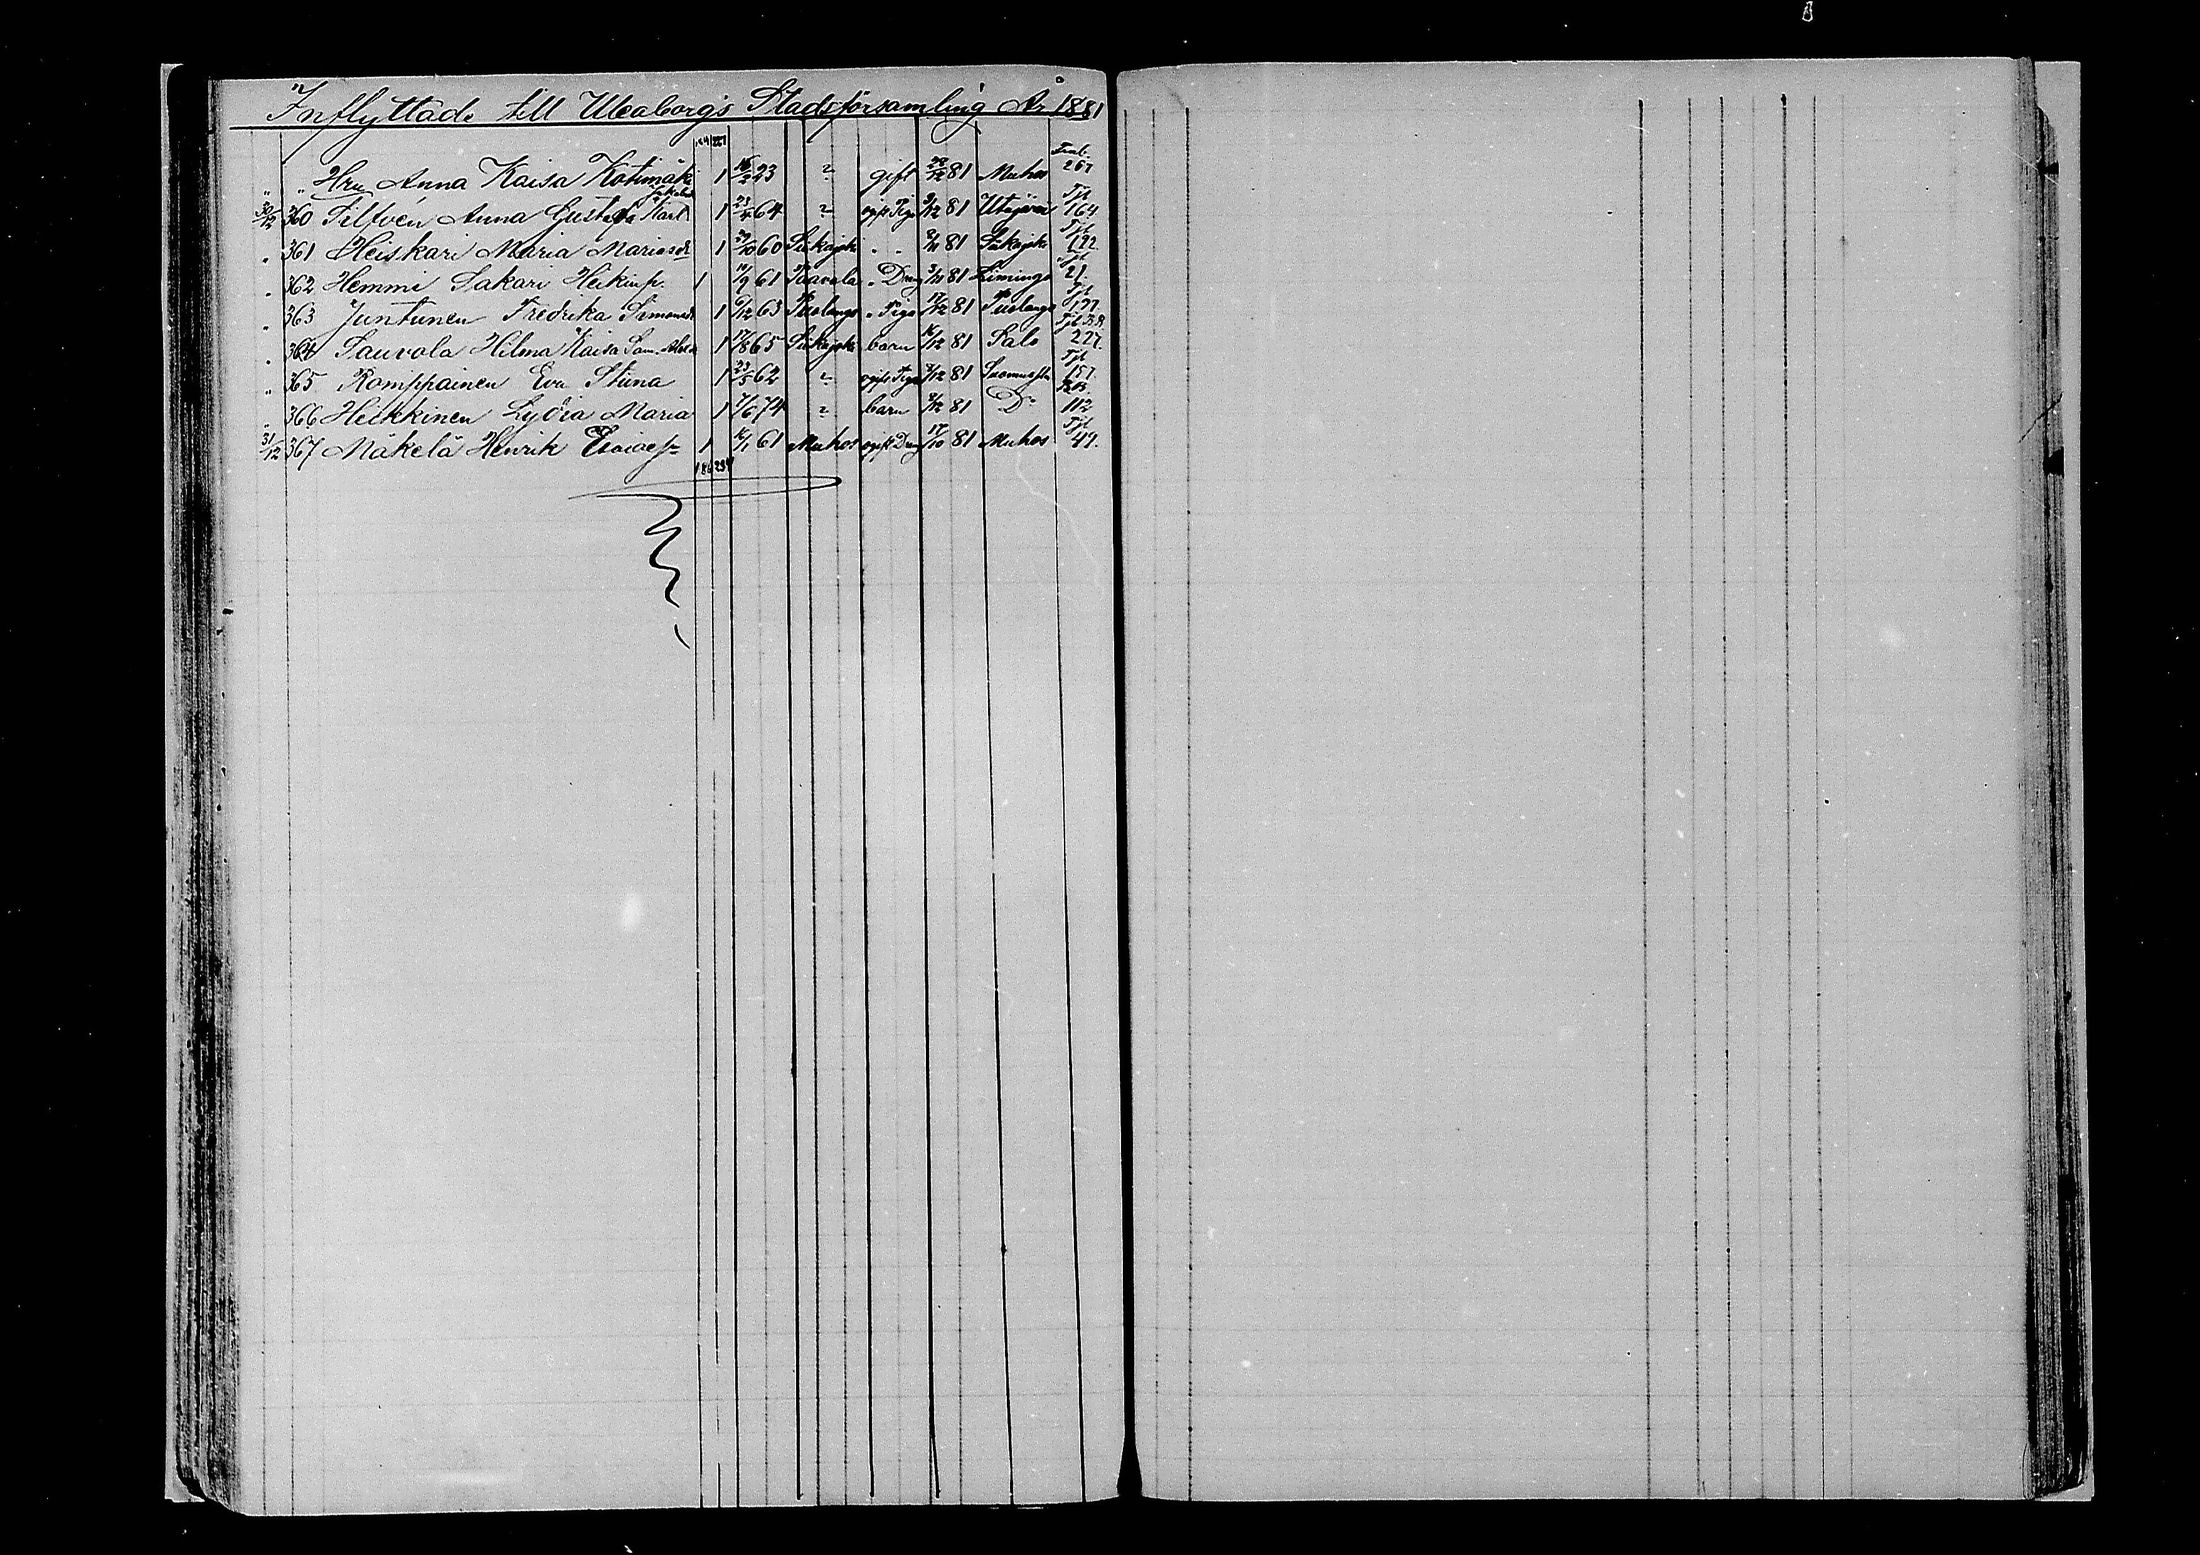 Inflyttade till Uleaborgs Stadsförsamling År 1881
227
" " Hru Anna Kaisa Kotimäki 1 16/2 23 ? gift 29/12 81 Muhos 267
30/12 360 Anna Gustafa 1 23/4 64 ? ogift Piga 9/12 81 Utajärvi Tjl 164
" 361 Heiskari Maria Mariasdr 1 29/10 60 Siikajoki " " 81 Siikajoki Tjl 122.
" 362 Hemmi Sakari Heikinp. 1 61 Paavola " Dräng 81 Limingo Tjl 21.
" 363 Juntunen Fredrika Simonsdr 1 9/12 63 Puolango " Piga 17/12 81 Puolango Tjl 177
" 364 Sauvola Hilma Kaisa Sam. 1 17/8 65 Siikajoki barn 16/12 81 Salo 227.
" 365 Romppainen Eva Stiina 1 23/5 62 ? ogift Piga 81 Suomussalmi Tjl 157.
" 366 Heikkinen Lydia Maria 1 7/6 74 ? barn 81 Do 112
31/12 367 Mäkelä Henrik Esaiass 1 61 Muhos ogift Dräng 17/10 81 Muhos Tjl 47.
186 234